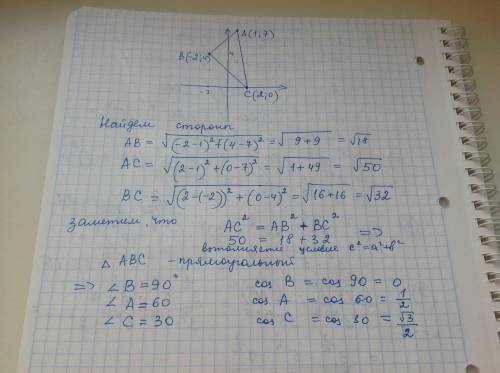 A(1;7)
B(-2;4)
4
-2
C(2;0)
Найдем стороны
AB = √((-2-1)²+(4-7)²) = √(9+9) = √18
AC = √((2-1)²+(0-7)²) = √(1+49) = √50
BC = √((2-(-2))²+(0-4)²) = √(16+16) = √32
Заметим, что AC² = AB² + BC² =>
50 = 18 + 32
выполняется условие c²=a²+b²
Δ ABC - прямоугольный
=> ∠B = 90° cos B = cos 90 = 0
∠A = 60 cos A = cos 60 = 1/2
∠C = 30 cos C = cos 30 = √3/2